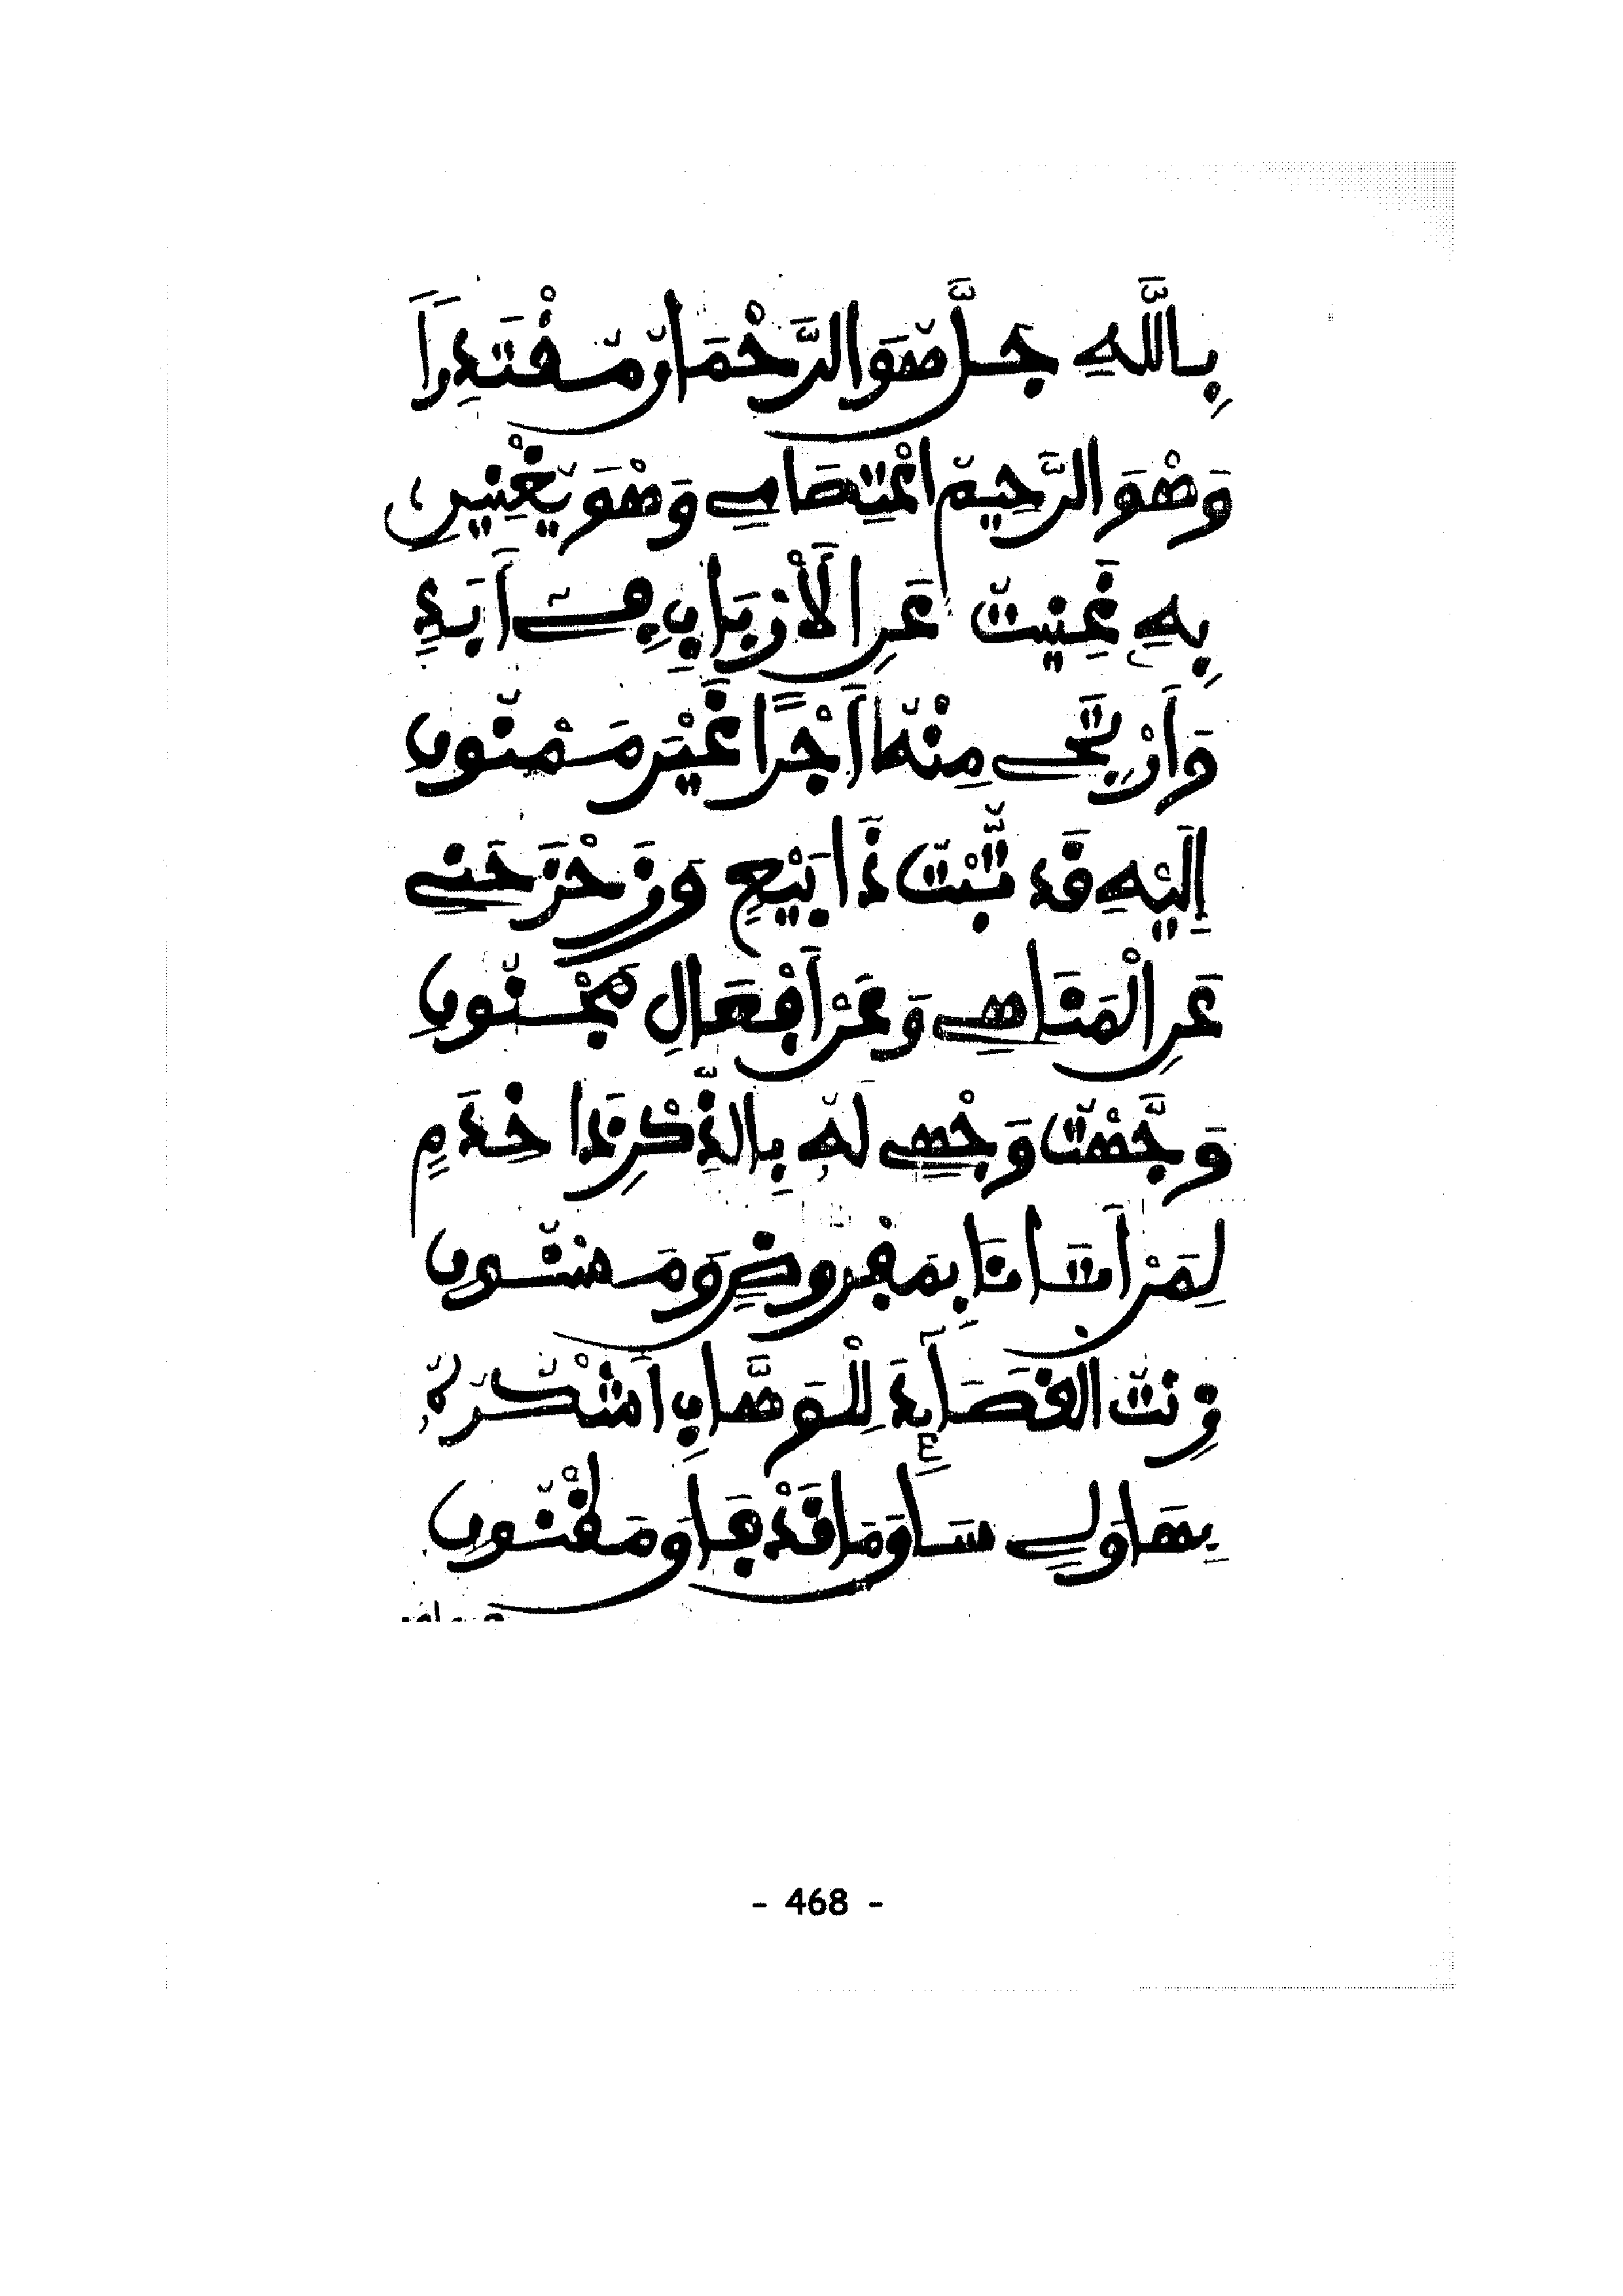 بِاللَّهِ جَلَّ هُوَ الرَّحْمَانُ مُقْتَدِراً
وَهْوَ الرَّحِيمُ اعْتِصَامِي وَهْوَ يُغْنِينِ
بِهِ غَنِيتُ عَنِ الْأَرْبَابِ فِي أَبَدٍ
وَأَنْ لِي مِنْهُ أَجْرًا غَيْرَ مَمْنُونِ
إِلَيْهِ قَد تُّبْتُ ذَا بَيْعٍ وَزَحْزَحَنِي
عَنِ الْمَنَاهِي وَعَنْ أَفْعَالِ مَجْنُونِ
وَجَّهْتُ وَجْهِي لَهُ بِالذِّكْرِ ذَا خَدَمٍ
لِمَنْ أَتَانَا بِمَفْرُوضٍ وَمَسْنُونِ
قُرِنَتِ الْقَصَائِدَ لِلْوَهَّابِ أَشْكُرُهُ
بِهَا وَلِي سَاوَمَا قَدْ فَاوَ مَظْنُونِ
- 468 -